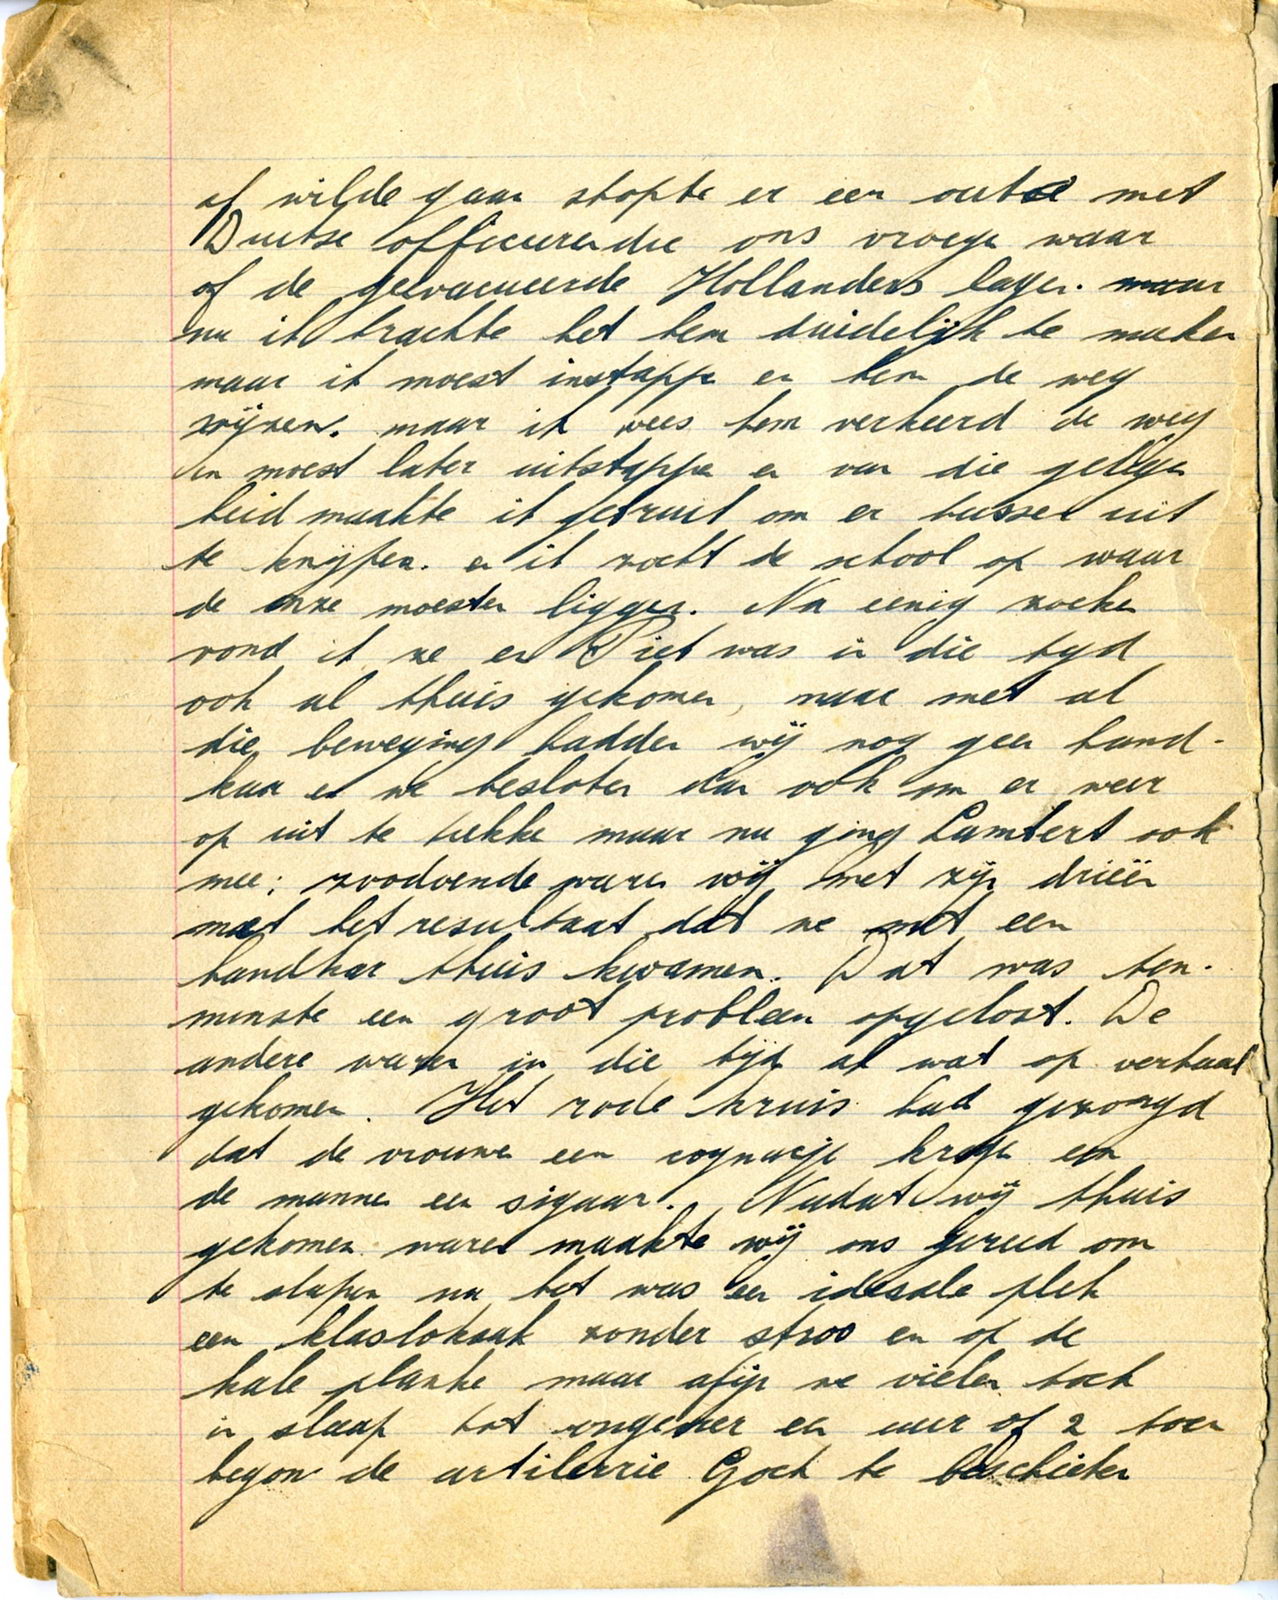 af wilde gaan stopte er een auto met
Duitse officieren die ons vroege waar
of de geevacueerde Hollanders lagen. maar
nu ik trachte het hem duidelijk te maken
maar ik moest instappe en hem de weg
wijzen. maar ik wees hem verkeerd de weg
en moest later uitstappe en van die gelegen
heid maakte ik gebruik om er tussen uit
te knijpen. en ik zocht de school op waar
de onze moesten liggen. Na eenig zoeken
vond ik ze en Piet was in die tyd
ook al thuis gekomen, maar met al
die beweging hadden wij nog geen hand-
kar en we besloten dan ook om er weer
op uit te trekke maar nu ging Lambert ook
mee; zoodoende waren wij met zijn drieën
met het resultaat dat we met een
handkar thuis kwamen. Dat was ten-
minste een groot probleem opgelost. De
andere waren in die tijd al wat op verhaal
gekomen. Het rode kruis had gezorgd
dat de vrouwen een cognacje krege en
de mannen een sigaar. Nadat wij thuis
gekomen waren maakte wij ons gereed om
te slapen nu het was een ideale plek
een klaslokaal zonder stroo en op de
kale planke maar afijn we vielen toch
in slaap tot ongeveer een uur of 2 toen
begon de artilerrie Goch te beschieten